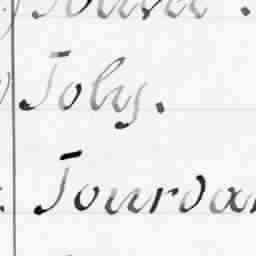 Joly.
Jourdan